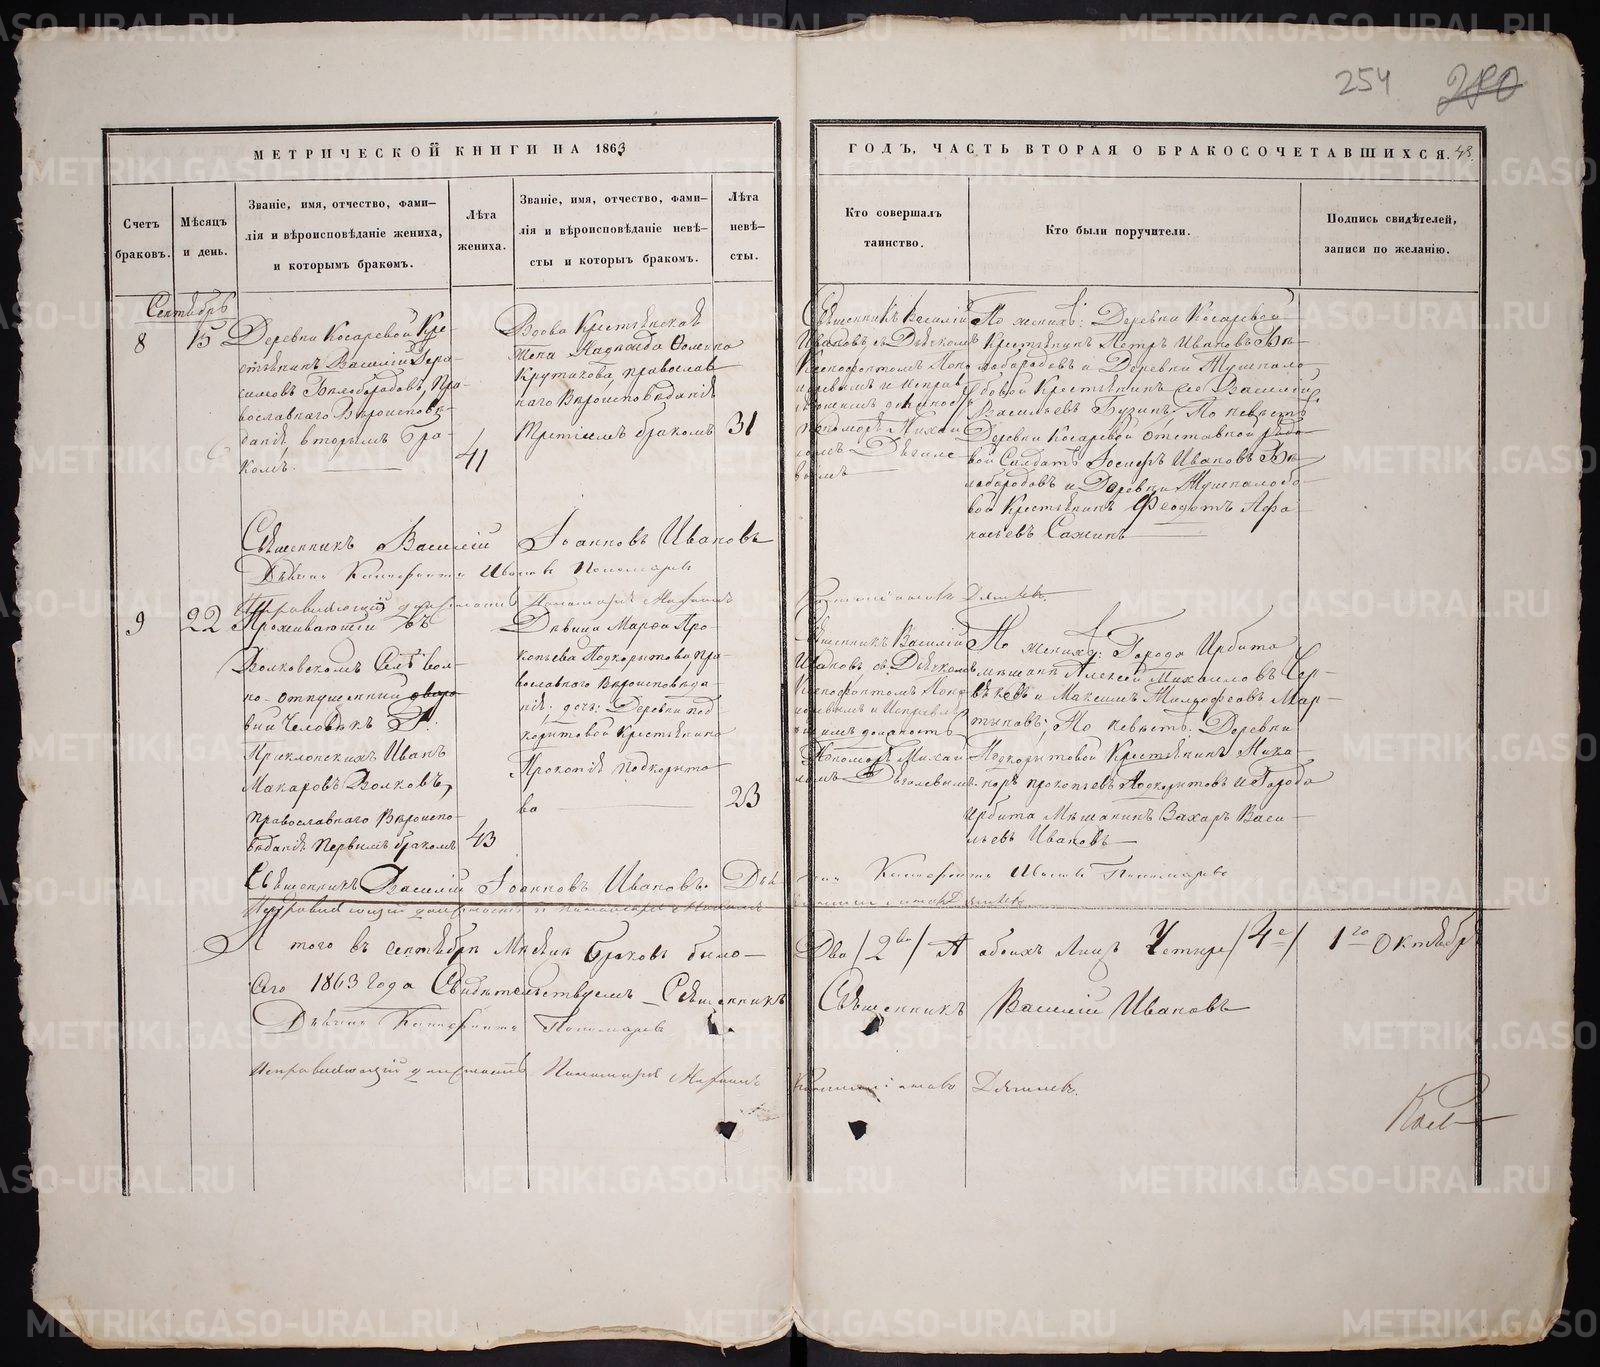 254 280
МЕТРИЧЕСКОЙ КНИГИ НА 1863
ГОДЪ, ЧАСТЬ ВТОРАЯ О БРАКОСОЧЕТАВШИХСЯ. 48.
Счетъ
браковъ.
Мѣсяцъ
и день.
Званіе, имя, отчество, фами-
лія и вѣроисповѣданіе жениха,
и которымъ бракомъ.
Лѣта
жениха.
Званіе, имя, отчество, фами-
лія и вѣроисповѣданіе невѣ-
сты и которыъ бракомъ.
Лѣта
невѣ-
сты.
Кто совершалъ
таинство.
Кто были поручители.
Подпись свидѣтелей,
записи по желанію.
Сентябрь
8
15
Деревни Косаревой Кре-
стьянинъ Василій Гера-
симовъ Бѣлобородовъ, Пра-
вославнаго Вѣроисповѣ-
данія, вторымъ бра-
комъ.
41
Вдова Крестьянская
Жена Надежда Ѳомина
Крутакова, православ
наго Вѣроисповѣданія
Третьимъ бракомъ
31
Священникъ Василій
Ивановъ съ Дьячкомъ
Ксенофонтомъ Поно
маревымъ и Исправ
ляющимъ должность
Пономаря Михаи
ломъ Дягиле
вымъ
По женихѣ: Деревни Косаревой
Крестьянинъ Петръ Ивановъ Бѣ-
лобородовъ и Деревни
Крестьянинъ Василій
Васильевъ Бузинъ. По невѣстѣ
Деревни Косаревой отставной рядо-
вой Солдатъ Іосифъ Ивановъ Бѣ-
лобородовъ и Деревни
вой Крестьянинъ Ѳеодотъ Афа-
насьевъ Сажинъ
Священникъ Василій Іоанновъ Ивановъ
Дьячекъ Ксенофонтъ Ивановъ Пономаревъ
Исправляющій должность Пономаря Михаилъ
Дягилевъ.
9
22
Проживающій въ
Волковскомъ Селѣ вол-
но-отпущенный дворо
вый Человѣкъ Г.
Иванъ
Макаровъ Волковъ,
православнаго Вѣроиспо-
вѣданія Первымъ бракомъ
43
Дѣвица Марѳа Про-
копьева Подкорытова, Пра-
вославнаго Вѣроисповѣда-
нія: дочь: Деревни Под-
корытовой Крестьянина
Прокопія Подкорыто
ва
23
Священникъ Василій
Ивановъ съ Дьячкомъ
Ксенофонтомъ Поно
маревымъ и Исправля
ющимъ должность
Пономаря Михаи
ломъ Дягилевымъ
По женихѣ: Города Ирбита
мѣщане Алексѣй Михайловъ Чер-
и Максимъ Тимофѣевъ Мар-
тыновъ; По невѣстѣ Деревни
Подкорытовой Крестьянинъ Ника-
норъ Прокопьевъ Подкорытовъ и Города
Ирбита Мѣщанинъ Захаръ Васи-
льевъ Ивановъ
Священникъ Василій Іоанновъ Ивановъ. Дья
чекъ Ксенофонтъ Ивановъ Пономаревъ
Исправляющій должность Пономаря Михаилъ
Дягилевъ.
А того въ Сентябрѣ Мѣсяцѣ браковъ было
Два /2ва/ А обоихъ Лицъ Четыре /4е/ 1го Октября
Сего 1863 года Свидѣтельствуемъ Священникъ
Священникъ Василій Ивановъ
Дьячекъ Ксенофонтъ Пономаревъ
Исправляющій должность Пономаря Михаилъ
Дягилевъ.
METRIKI.GASO-URAL.RU